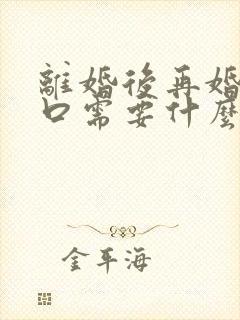 離婚後再婚
口需要什麼
金平海